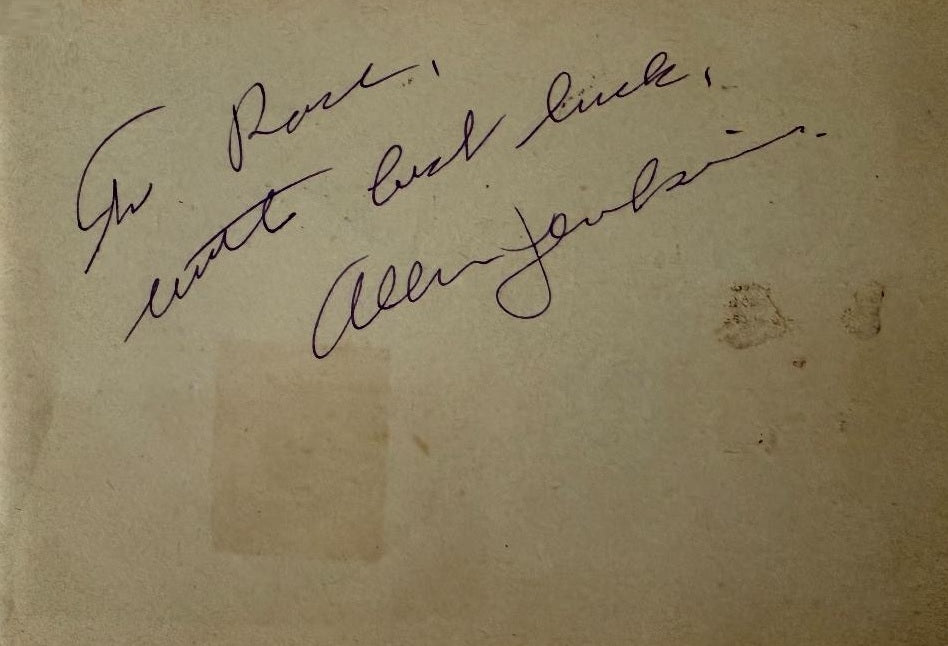 To Rose,
with best luck,
Allen Jenkins.